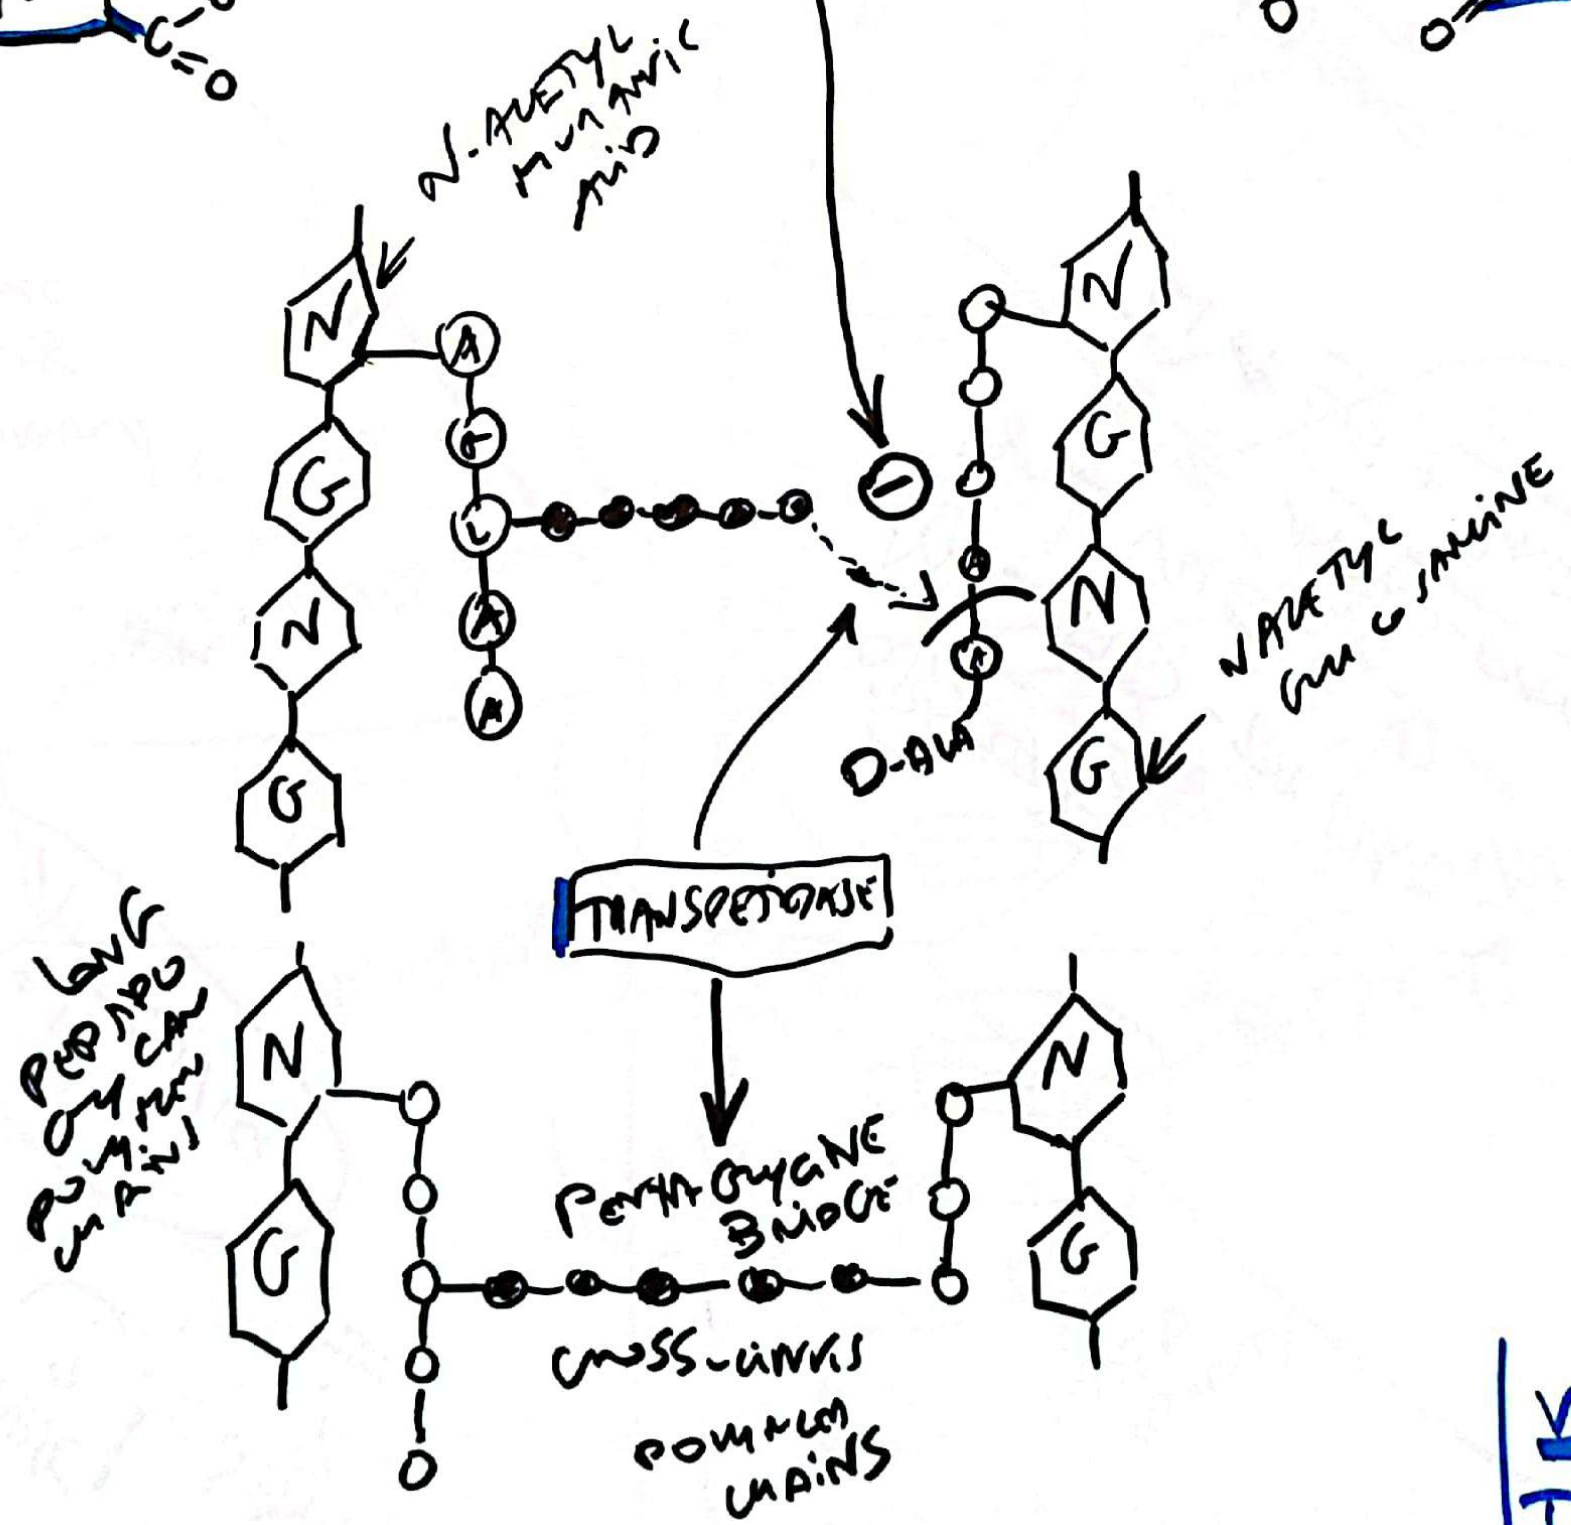 C
O
O
O
N-ACETYL
MURAMIC
ACID
N
A
G
L
A
A
G
N
G
N
G
N
G
A
A
D-ALA
N ACETYL
GLUCOSAMINE
TRANSPEPTIDASE
LONG
PEPTIDO
GLYCAN
POLYMER
CHAINS
N
G
PENTA GLYCINE
BRIDGE
CROSS-LINKS
POLYMER
CHAINS
N
G